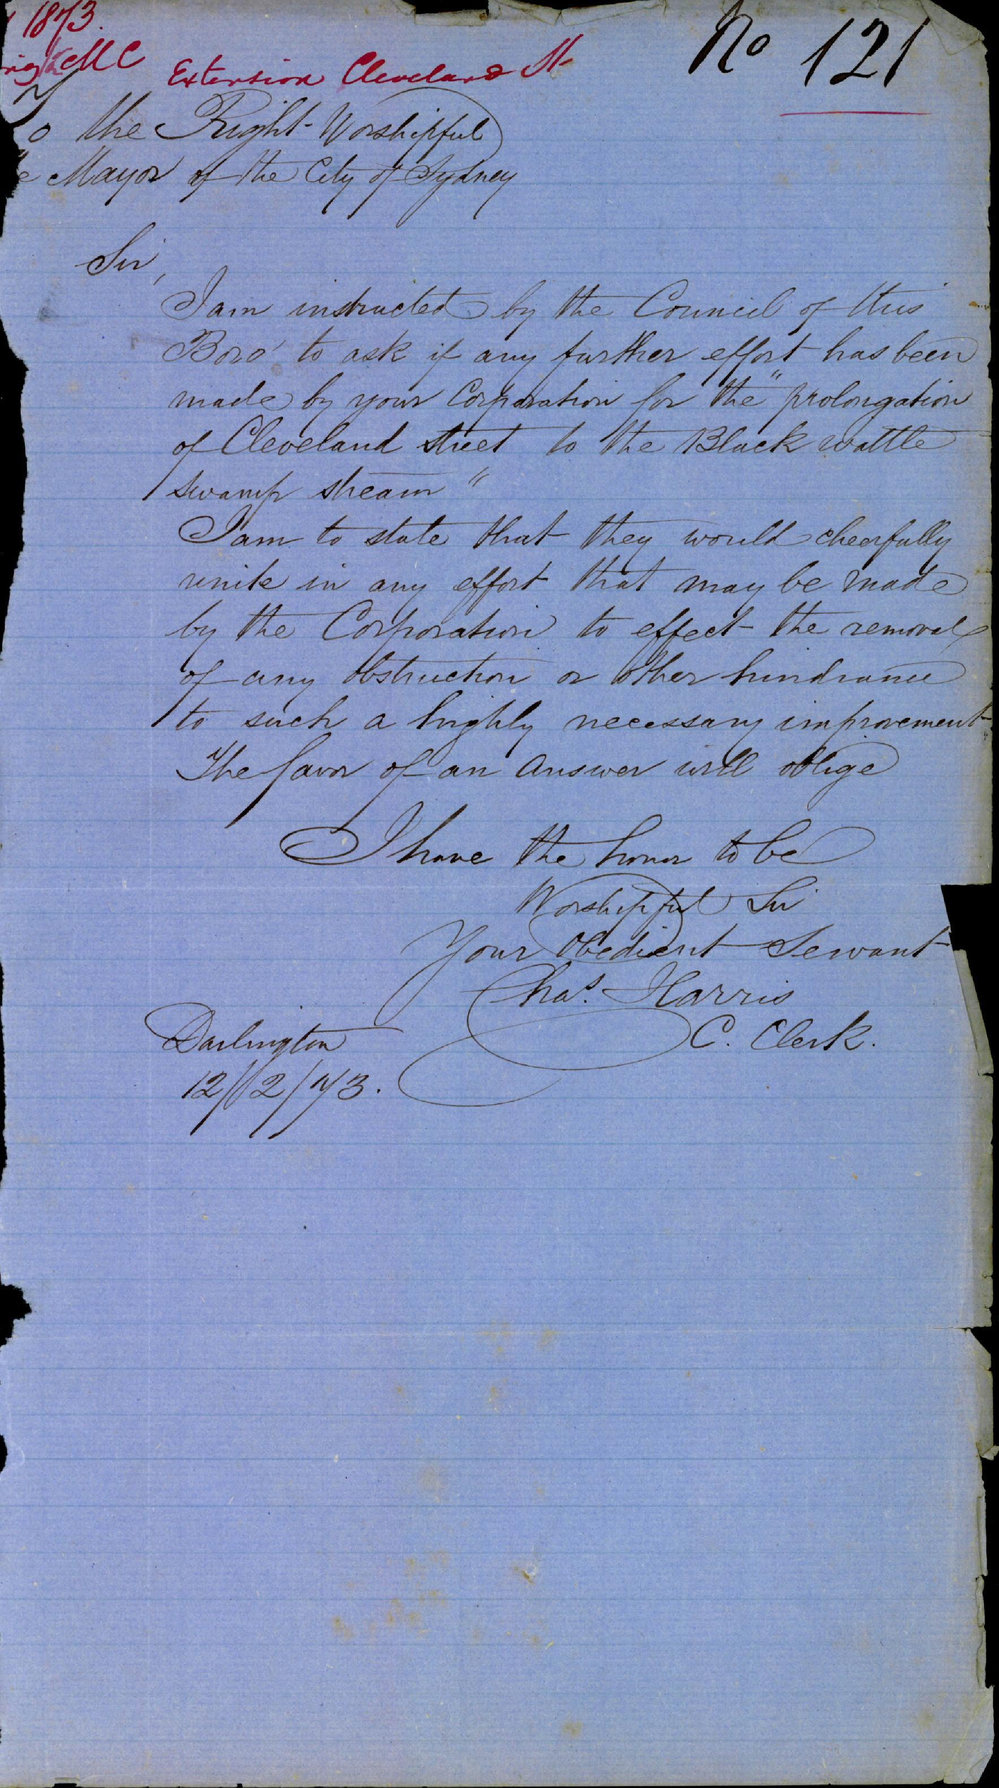 1873.
MC
Extension Cleveland St
No 121
the Right Worshipful
Mayor of the City of Sydney
Sir,
I am instructed by the Council of this
Boro' to ask if any further effort has been
made by your Corporation for the "prolongation
of Cleveland street to the Black wattle
swamp stream"
I am to state that they would cheerfully
unite in any effort that may be made
by the Corporation to effect the removal
of any obstruction or other hindrance
to such a highly necessary improvement
The favor of an answer will oblige
I have the honor to be
Worshipful Sir
Your obedient Servant
Chas. Harris
C. Clerk.
Darlington
12/2/73.